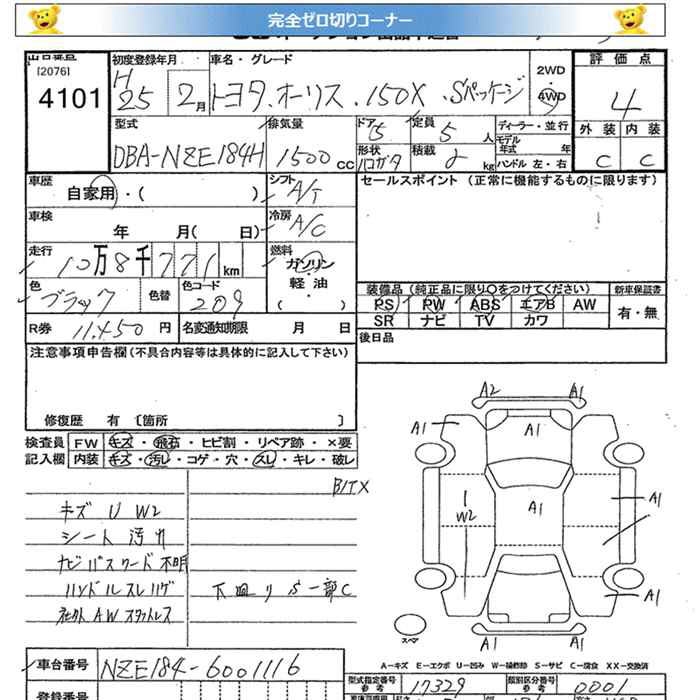 完全ゼロ切りコーナー
出品番号 初度登録年月 車名・グレード 2WD 評価点
[2076] 4101 H25 2月 トヨタ オーリス 150X Sパッケージ 4WD 4
型式 排気量 ドア 定員 ディーラー・並行 外装 内装
DBA-NZE184H 1500cc 5 5人 モデル年式 年 C C
形状 積載 kg ハンドル 左・右
車歴 シフト セールスポイント (正常に機能するものに限ります)
自家用・( ) A/T
車検 冷房
年 月( 日) A/C
走行 燃料
10万8千771km ガソリン
色 色替 色コード 軽油 装備品(純正品に限り○をつけてください) 新車保証書
ブラック 209 ・( ) PS PW ABS エアB AW 有・無
R券 11,450円 名変通知期限 月 日 SR ナビ TV カワ
注意事項申告欄(不具合内容等は具体的に記入して下さい) 後日品
修復歴 有 〔箇所 〕
検査員 FW キズ・飛石・ヒビ割・リペア跡・×要
記入欄 内装 キズ・汚レ・コゲ・穴・スレ・キレ・破レ
A2 A1
A1 A1
A1 A1
W2
A1
A1 A1
キズ U W2
シート 汚れ
ナビパスワード不明
ハンドルスレ ハゲ 下廻り S 一部C
社外AW スタッドレス
スペア
A-キズ E-エクボ U-凹み W-補修跡 S-サビ C-腐食 XX-交換済
車台番号 NZE184-6001116 型式指定番号 参考 17329 類別区分番号 参考 0001
登録番号